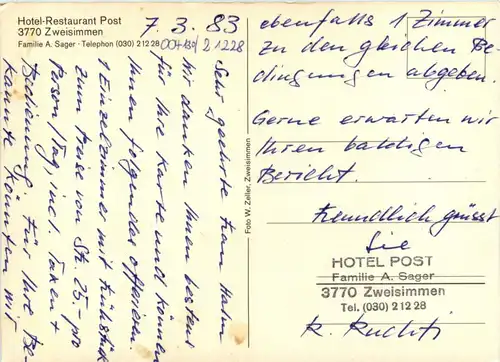 Hotel-Restaurant Post
3770 Zweisimmen
Familie A. Sager · Telephon (030) 2 12 28
7. 3. 83
0041 30/ 2 1228
Sehr geehrte Frau Hahn
Wir danken Ihnen bestens
für Ihre Karte und können
Ihnen folgendes offerieren
1 Einzelzimmer mit Frühstück
zum Preise von Fr. 25,- pro
Person/Tag, incl. Taxen +
Bedienung. Für Ihre Be-
kannte könnten wir
Foto W. Zeller, Zweisimmen
ebenfalls 1 Zimmer
zu den gleichen Be-
dingungen abgeben.
Gerne erwarten wir
Ihren baldigen
Bericht.
Freundlich grüsst
Sie
HOTEL POST
Familie A. Sager
3770 Zweisimmen
Tel. (030) 2 12 28
K. Ruchti